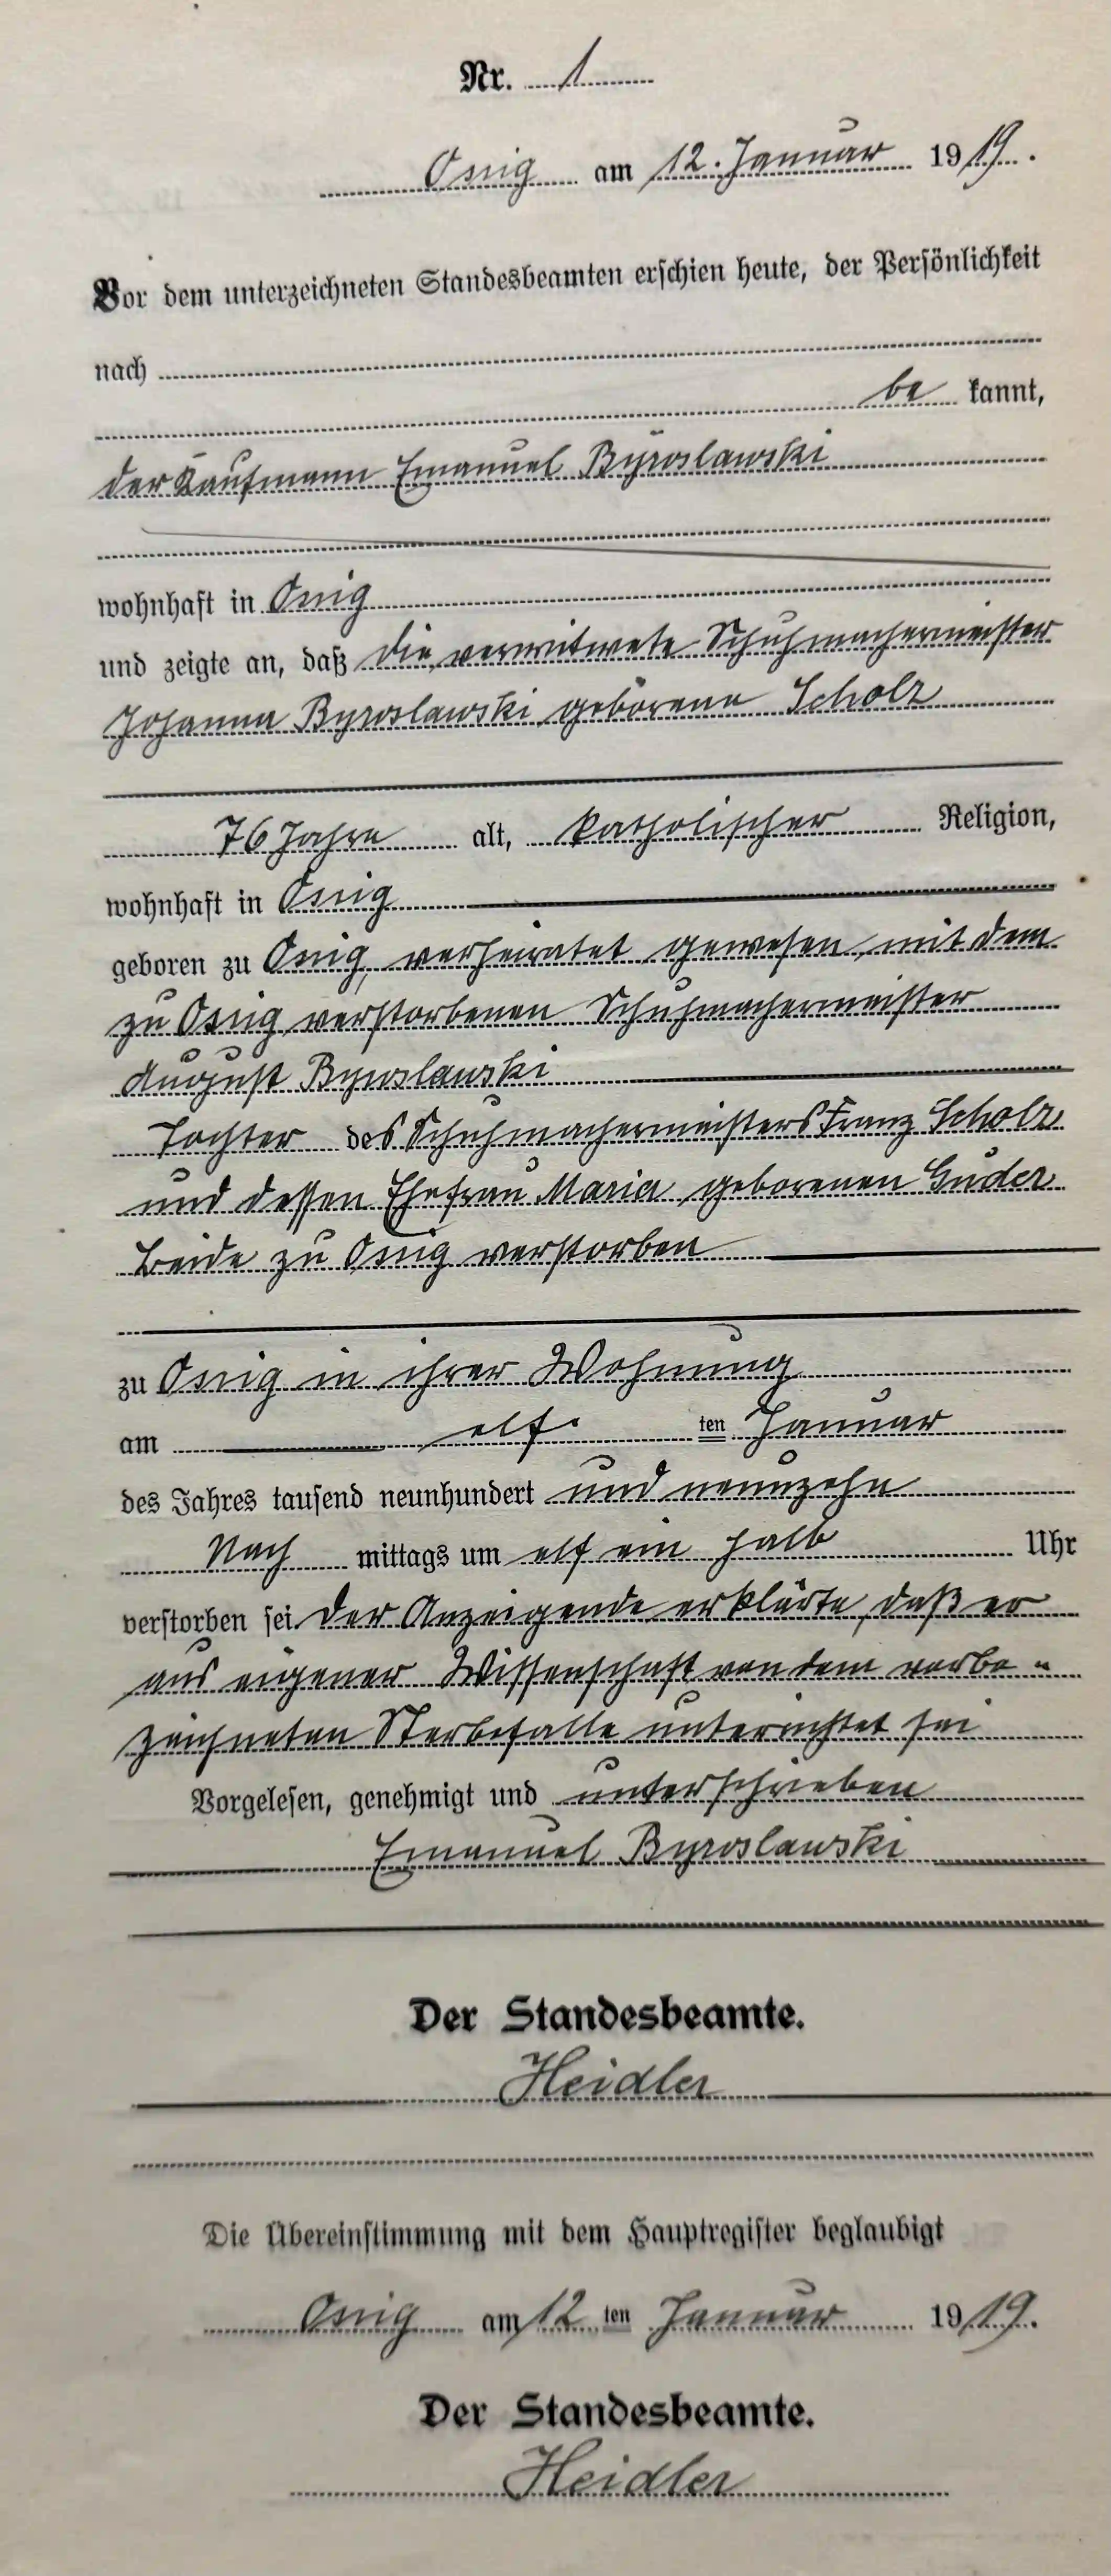 Nr. 1
Ossig am 12. Januar 1919.
Vor dem unterzeichneten Standesbeamten erschien heute, der Persönlichkeit
nach
be kannt,
der Kaufmann Emanuel Byroslawski
wohnhaft in Ossig
und zeigte an, daß die verwitwete Schuhmachermeister
Johanna Byroslawski geborene Scholz
76 Jahre alt, katholischer Religion,
wohnhaft in Ossig
geboren zu Ossig, verheiratet gewesen mit dem
zu Ossig verstorbenen Schuhmachermeister
August Byroslawski
Tochter des Schuhmachermeisters Franz Scholz
und dessen Ehefrau Maria geborenen Guder
Beide zu Ossig verstorben
zu Ossig in ihrer Wohnung
am elf ten Januar
des Jahres tausend neunhundert und neunzehn
Nach mittags um elf ein halb Uhr
verstorben sei. Der Anzeigende erklärte, daß er
aus eigener Wissenschaft von dem vorbe-
zeichneten Sterbefalle unterrichtet sei
Vorgelesen, genehmigt und unterschrieben
Emanuel Byroslawski
Der Standesbeamte.
Heidler
Die Übereinstimmung mit dem Hauptregister beglaubigt
Ossig am 12 ten Januar 1919.
Der Standesbeamte.
Heidler